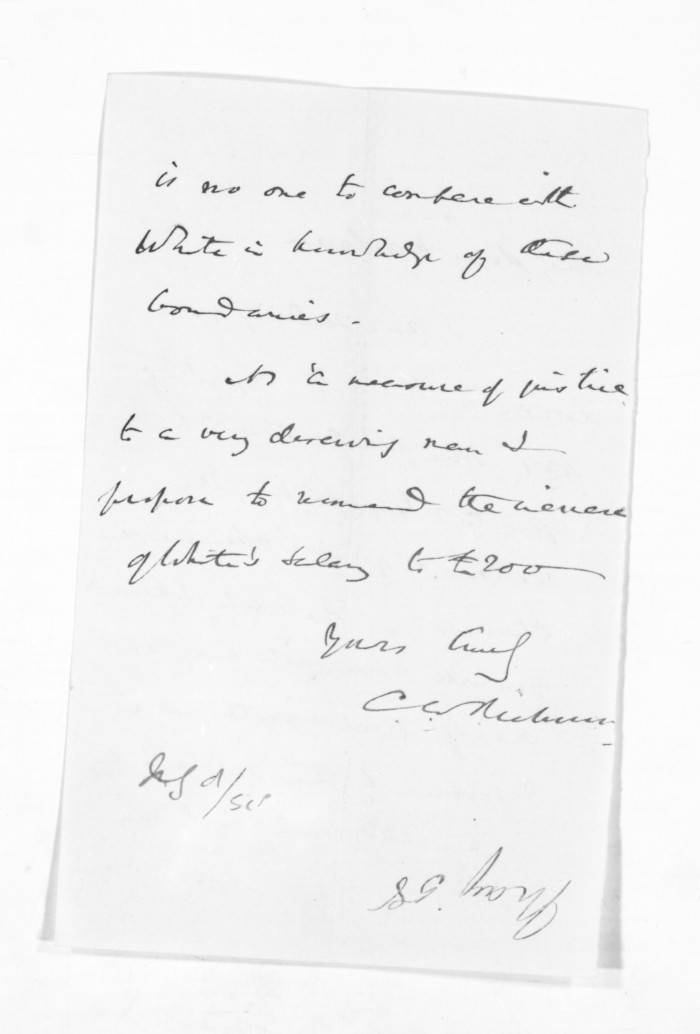 is no one to compare with
White in knowledge of these
boundaries.
As a measure of justice
to a very deserving man I
propose to recommend the increase
of White's salary to £200
Yours truly
C W Richmond